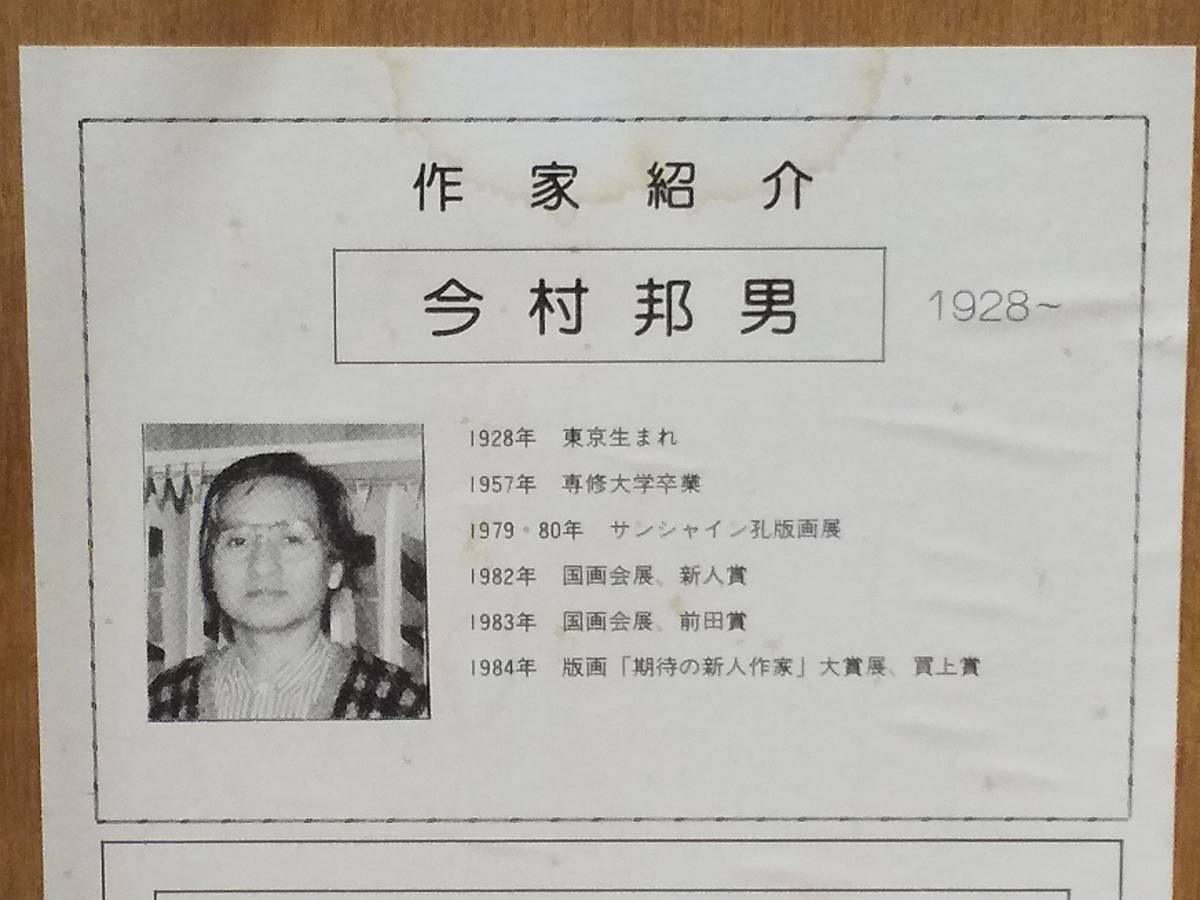 作家紹介
今村邦男 1928~
1928年 東京生まれ
1957年 専修大学卒業
1979・80年 サンシャイン孔版画展
1982年 国画会展、新人賞
1983年 国画会展、前田賞
1984年 版画「期待の新人作家」大賞展、買上賞